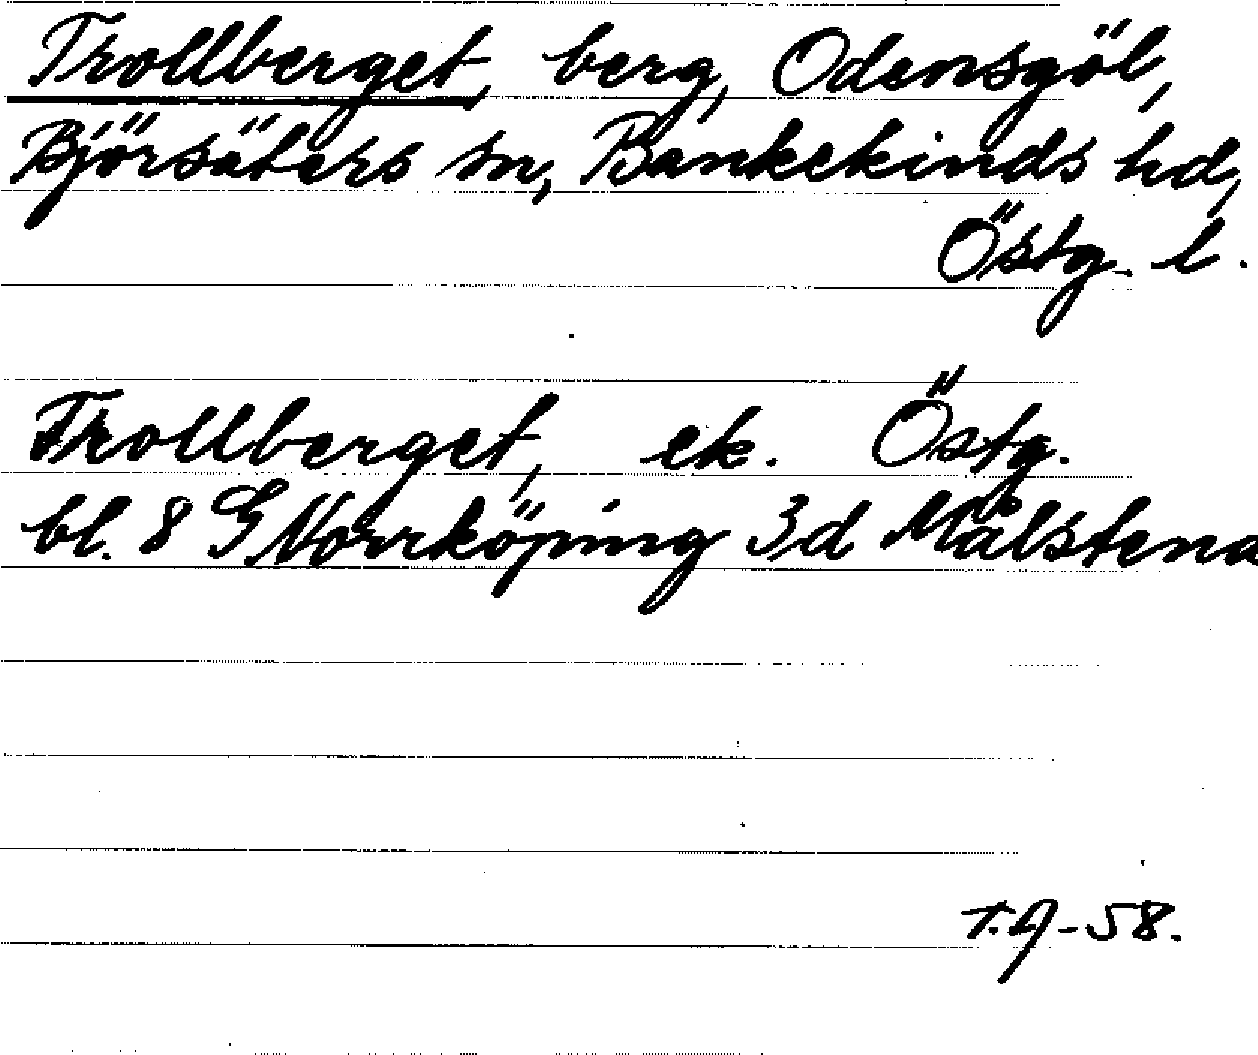 Trollberget, berg, Odensgöl,
Björsäters sn, Bankekinds hd,
Östg. l.
Trollberget, ek. Östg.
bl. 8 G Norrköping 3d Målstena
T.A-58.